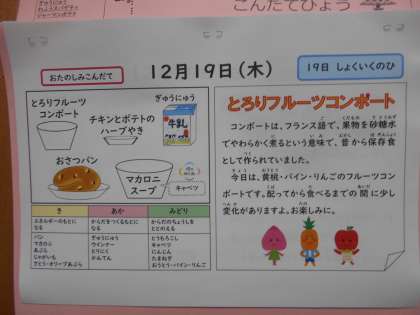 こんだてひょう
ぎゅうにゅう
おたのしみこんだて
12月19日(木)
19日 しょくいくのひ
とろりフルーツ
コンポート
ぎゅうにゅう
牛乳
チキンとポテトの
ハーブやき
おさつパン
マカロニ
スープ
キャベツ
き
あか
みどり
エネルギーのもとに
なる
からだをつくるもとに
なる
からだのちょうしを
ととのえる
パン
マカロニ
あぶら
じゃがいも
さとう・オリーブあぶら
ぎゅうにゅう
ウインナー
とりにく
かんてん
とうもろこし
キャベツ
にんじん
たまねぎ
おうとう・パイン・りんご
とろりフルーツコンポート
コンポートは、フランス語で、果物を砂糖水
でやわらかく煮るという意味で、昔から保存食
として作られていました。
今日は、黄桃・パイン・りんごのフルーツコン
ポートです。配ってから食べるまでの間に少し
変化がありますよ。お楽しみに。